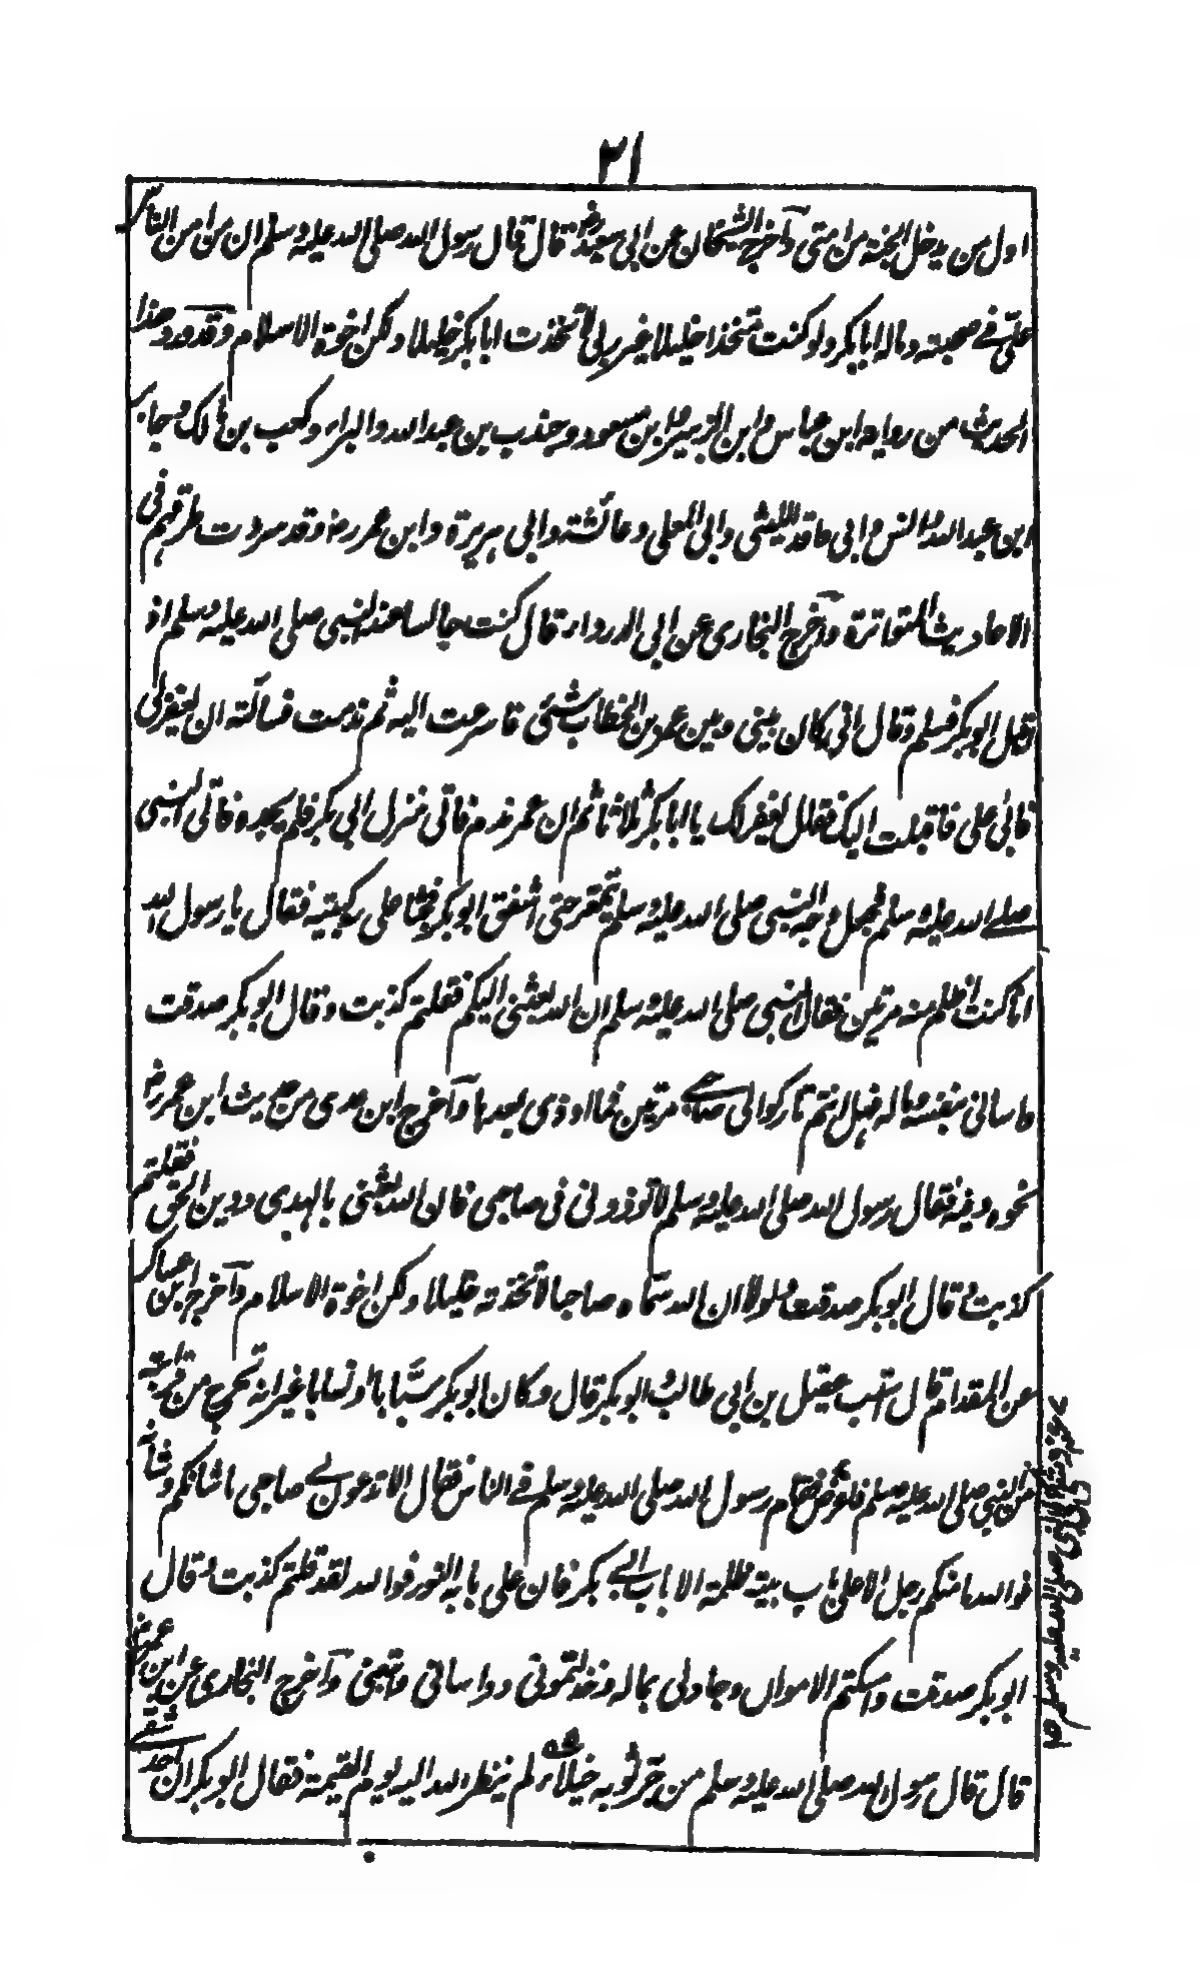 ٢١
اول من يدخل الجنة من امتى وآخرج الشيخان عن ابى سعيد رض قال قال رسول الله صلى الله عليه وسلم ان من امن الناس
علىّ فے صحبته وماله ابا بكر ولو كنت متخذا خليلا غير ربى لاتخذت ابا بكر خليلا ولكن اخوة الاسلام وقد ورد هذا
الحديث من رواية ابن عباس وابن الزبير وابن مسعود وجندب بن عبد الله والبراء وكعب بن مالك وجابر
ابن عبد الله وانس وابى واقد الليثى وابى المعلى وعائشة وابى هريرة وابن عمر رض وقد سردت طرقهم فى
الاحاديث المتواترة وآخرج البخارى عن ابى الدرداء قال كنت جالسا عند النبى صلى الله عليه وسلم اذ
اقبل ابو بكر فسلم وقال انى كان بينى وبين عمر بن الخطاب شئ فاسرعت اليه ثم ندمت فسألته ان يغفر لى
فابى على فاقبلت اليك فقال يغفر لك يا ابا بكر ثلاثا ثم ان عمر ندم فاتى منزل ابى بكر فلم يجده فاتى النبى
صلے الله عليه وسلم فجعل وجه النبى صلى الله عليه وسلم يتمعر حتى اشفق ابو بكر فجثا على ركبتيه فقال يا رسول الله
انا كنت اظلم منه مرتين فقال النبى صلى الله عليه وسلم ان الله بعثنى اليكم فقلتم كذبت وقال ابو بكر صدقت
واسانى بنفسه وماله فهل انتم تاركوا لى صاحبے مرتين فما اوذى بعدها وآخرج ابن عدى من حديث ابن عمر رض
نحوه وفيه فقال رسول الله صلى الله عليه وسلم لا تؤذونى فى صاحبى فان الله بعثنى بالهدى ودين الحق فقلتم
كذبت وقال ابو بكر صدقت ولولا ان الله سماه صاحبا لاتخذته خليلا ولكن اخوة الاسلام وآخرج ابن عساكر
عن المقدام قال استب عقيل بن ابى طالب وابو بكر قال وكان ابو بكر سبابا او نسابا غير انه تحرج من قرابته
من النبى صلى الله عليه وسلم فاعرض فقام رسول الله صلى الله عليه وسلم فے الناس فقال الا تدعون لے صاحبى ما شانكم وشأنه
فوالله ما منكم رجل الا على باب بيته ظلمة الا باب ابے بكر فان على بابه النور فوالله لقد قلتم كذبت وقال
ابو بكر صدقت وامسكتم الاموال وجاد لى بماله وخذلتمونى وواسانى واتبعنى وآخرج البخارى عن ابن عمر رض
قال قال رسول الله صلى الله عليه وسلم من جر ثوبه خيلاء لم ينظر الله اليه يوم القيمة فقال ابو بكر ان احد شقى